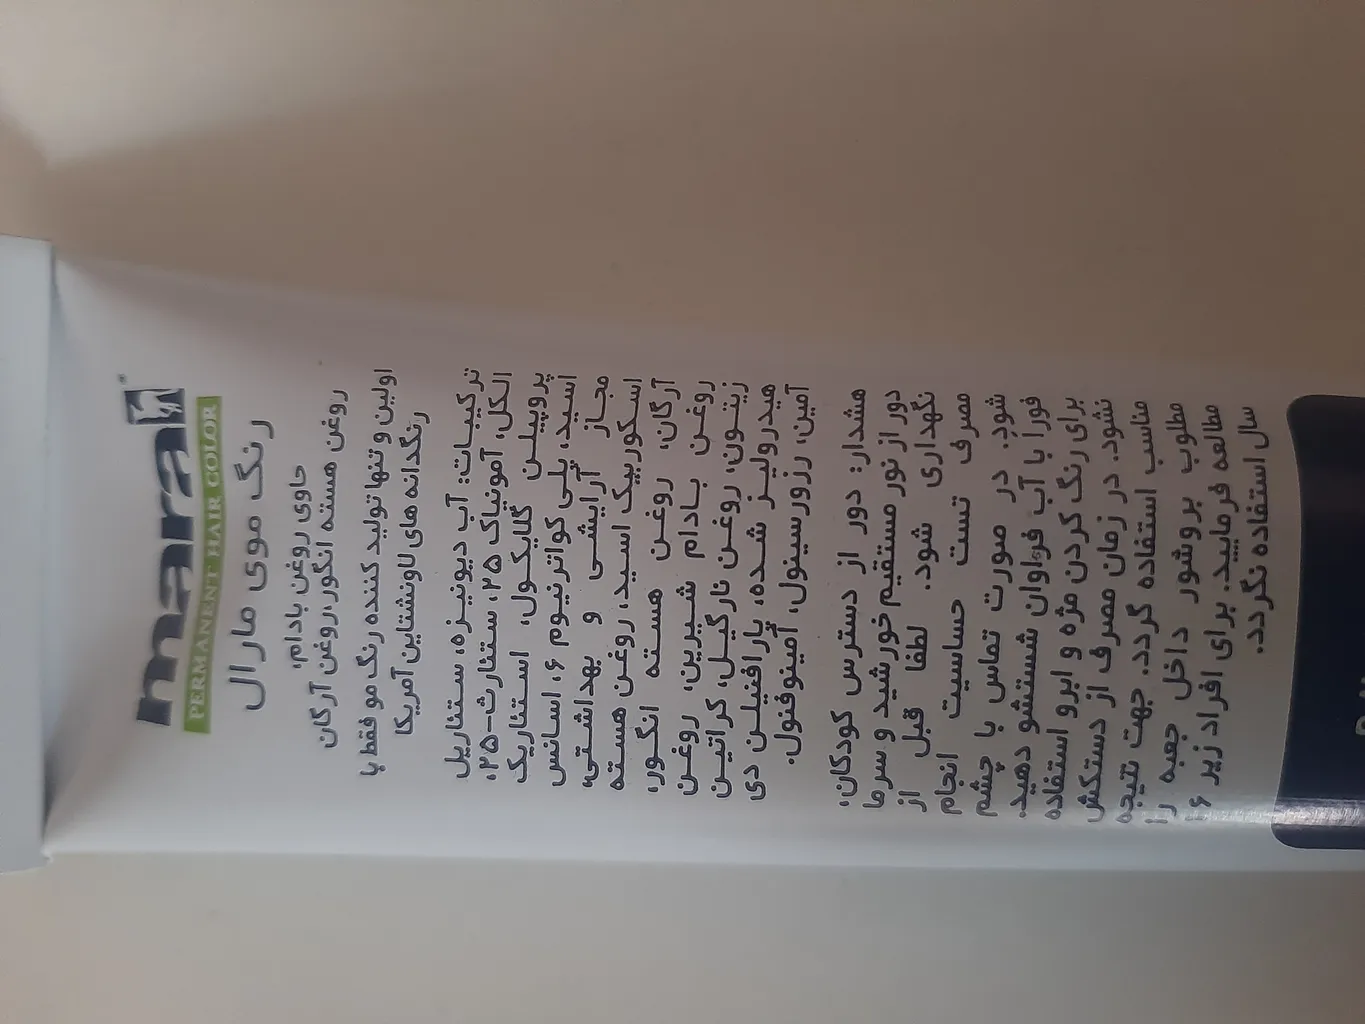 maral
PERMANENT HAIR COLOR
رنگ موی مارال
حاوی روغن بادام،
روغن هسته انگور، روغن آرگان
اولین و تنها تولید کننده رنگ مو فقط با
رنگدانه های لاونشتاین آمریکا
ترکیبات: آب دیونیزه، ستئاریل
الکل، آمونیاک ۲۵، ستئارت-۲۵،
پروپیلن گلایکول، استئاریک
اسید، پلی کواترنیوم ۶، اسانس
مجاز آرایشی و بهداشتی،
اسکوربیک اسید، روغن هسته
آرگان، روغن هسته انگور،
روغن بادام شیرین، روغن
زیتون، روغن نارگیل، کراتین
هیدرولیز شده، پارافنیلن دی
آمین، رزورسینول، آمینوفنول.
هشدار: دور از دسترس کودکان،
دور از نور مستقیم خورشید و سرما
نگهداری شود. لطفا قبل از
مصرف تست حساسیت انجام
شود. در صورت تماس با چشم
فورا با آب فراوان شستشو دهید.
برای رنگ کردن مژه و ابرو استفاده
نشود. در زمان مصرف از دستکش
مناسب استفاده گردد. جهت نتیجه
مطلوب بروشور داخل جعبه را
مطالعه فرمایید. برای افراد زیر ۱۶
سال استفاده نگردد.